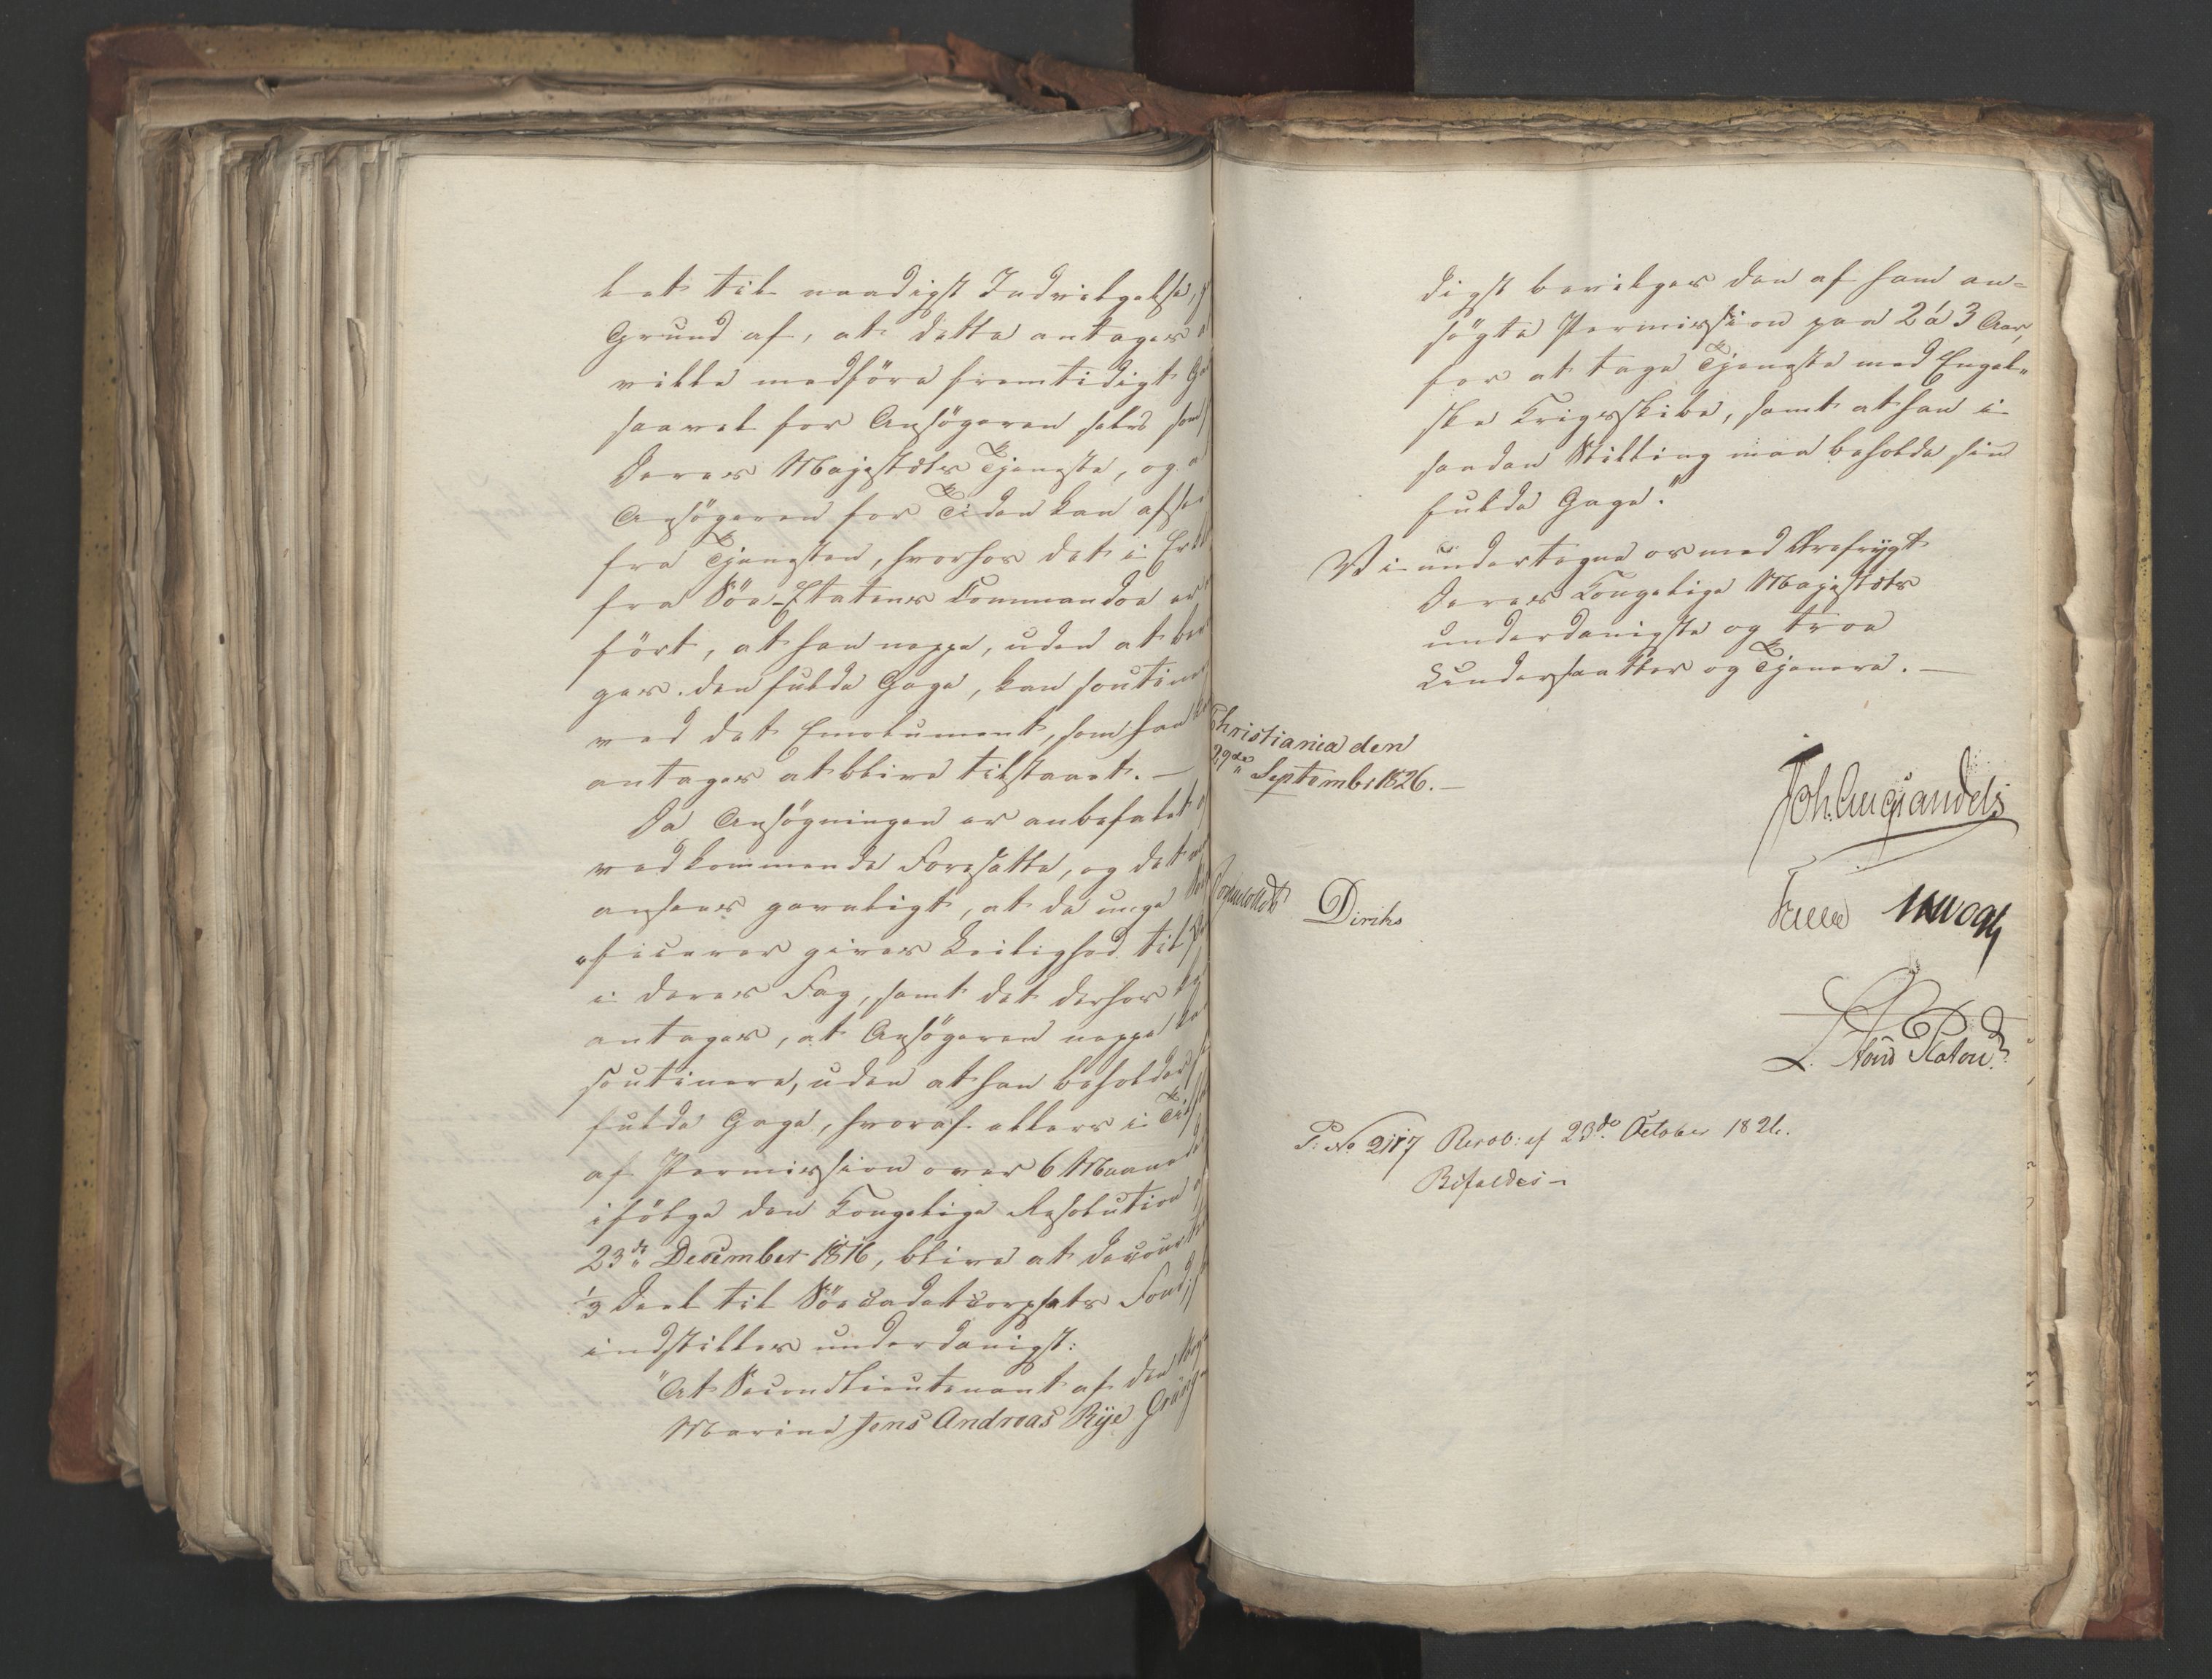 let til naadigst Indvilgelse,
Grund af, at dette antages
ville medføre fremtidigt
saavel for Ansøgeren selv som
Deres Majestæts Tjeneste, og
Ansøgeren for Tiden kan
fra Tjenesten, hvorhos det i
fra Søe-Etatens Commandoe er
ført, at han neppe, uden at
ges den fulde Gage, kan soutinere
ved det Emolument, som han
antages at blive tilstaaet. –
Da Ansøgningen er anbefalet
vedkommende Foresatte, og det
ansees gavnligt, at de unge
„ficerer gives Leilighed til
i deres Fag, samt det derhos
antages, at Ansøgeren neppe kan
soutinere, uden at han beholder
fulde Gage, hvoraf ellers i
af Permission over 6 Maaneder
ifølge den Kongelige Resolution
23de December 1816, blive at decourtere
1/3 Deel til Søecadetcorpsets Fond,
indstilles underdanigst:
"At Secondlieutenant af den
Marine Jens Andreas Rye
digst bevilges den af ham an=
søgte Permission paa 2 á 3 Aar,
for at tage Tjeneste med Engel„
ske Krigsskibe, samt at han i
saadan Stilling maa beholde sin
fulde Gage."
Vi undertegne os med Ærefrygt
Deres Kongelige Majestæts
underdanigste og troe
Undersaatter og Tjenere. –
Christiania den
29de September 1826. –
Joh. Aug Sandels
Diriks
L. von Platen
P. No 2117 Resol: af 23de October 1826.
Bifaldes –